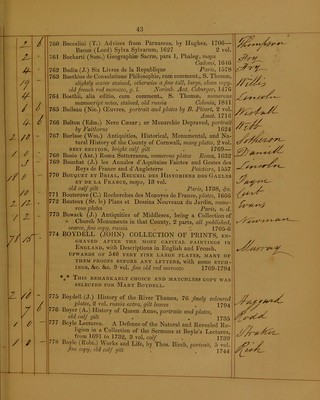 43
2 6 760 Boccalini (T.) Advices from Parnassus, by Hughes, 1706— Thompson
Bacon (Lord) Sylva Sylvarum, 1627 2 vol.
761 Bocharti (Sam.) Geographiæ Sacræ, pars I, Phaleg, maps
Cadomi, 1646
4 762 Bodin (J.) Six Livres de la Republique Paris, 1578
763 Boethius de Consolatione Philosophie, cum comment., S. Thomæ,
slightly water stained, otherwise a fine tall, large, clean copy, Willis
old french red morocco, g. l. Norimb. Ant. Coberger, 1476
4 764 Boethii, alia editio, cum comment., S. Thomæ, numerous Lincoln
manuscript notes, stained, old russia Coloniæ, 1481
765 Boileau (Nic.) Œuvres, portrait and plates by B. Picart, 2 vol. 
Amst. 1718
4 6 766 Bolton (Edm.) Nero Cæsar; or Monarchie Depraved, portrait Webb
by Faithorne 1624
2 10 767 Borlase (Wm.) Antiquities, Historical, Monumental, and Natural History of the County of Cornwall, many plates, 2 vol.
BEST EDITION, bright calf gilt 1769—
768 Bosio (Ant.) Roma Sotterranea, numerous plates Roma, 1632 Daniell
769 Bouchet (J.) les Annales d'Aquitaine Faictes and Gestes des
Roys de France and d'Angleterre Poictiers, 1557 Lincoln
770 BOUQUET ET BRIAL, RECUEIL DES HISTORIENS DES GAULES
ET DE LA FRANCE, maps, 13 vol.
old calf gilt Paris, 1738, &c.
771 Bouteroue (C.) Recherches des Monoyes de France, plates, 1666
772 Bouteux (Sr. le) Plans et Dessins Nouveaux du Jardin, numerous plates Paris, n. d. Evans
773 Bowack (J.) Antiquities of Middlesex, being a Collection of
Church Monuments in that County, 2 parts, all published, Newman
scarce, fine copy, russia 1705-6
774 BOYDELL (JOHN) COLLECTION OF PRINTS, ENGRAVED AFTER THE MOST CAPITAL PAINTINGS IN
ENGLAND, with Descriptions in English and French,
UPWARDS OF 540 VERY FINE LARGE PLATES, MANY OF Murray
THEM PROOFS BEFORE ANY LETTERS, with SOME ETCHINGS, &c. &c. 9 vol. fine old red morocco 1769-1794
*** THIS REMARKABLY CHOICE AND MATCHLESS COPY WAS
SELECTED FOR MARY BOYDELL.
2 10 775 Boydell (J.) History of the River Thames, 76 finely coloured
plates, 2 vol. russia extra, gilt leaves 1794 Haggard
776 Boyer (A.) History of Queen Anne, portraits and plates,
old calf gilt 1735
777 Boyle Lectures. A Defence of the Natural and Revealed Religion in a Collection of the Sermons at Boyle's Lectures,
from 1691 to 1732, 3 vol. calf 1739
1 0 778 Boyle (Robt.) Works and Life, by Thos. Birch, portrait, 5 vol. Rich
fine copy, old calf gilt 1744